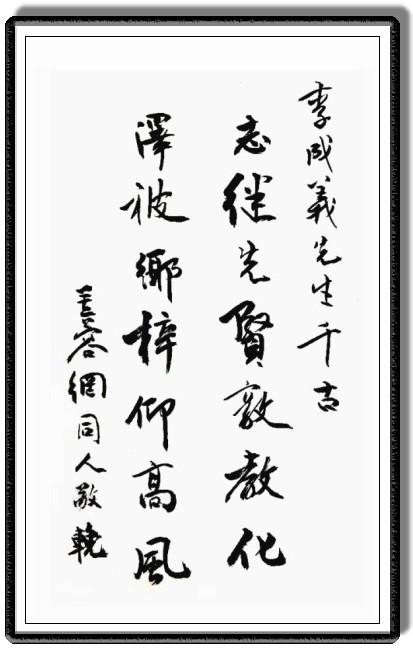 李成義先生千古
志継先賢敦教化
澤被鄉梓仰高風
網同人敬輓